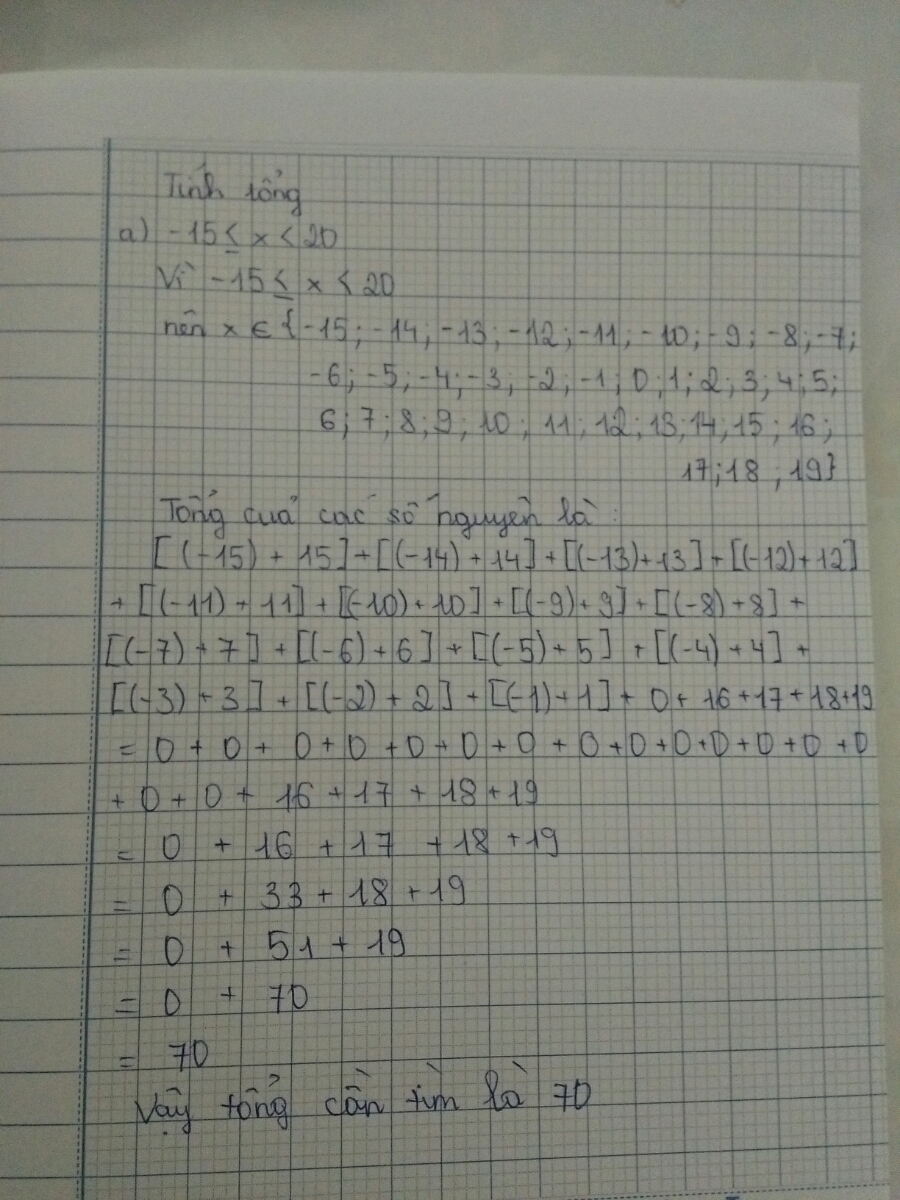 Tính tổng
a) -15 ≤ x < 20
Vì -15 ≤ x < 20
nên x ∈ {-15; -14; -13; -12; -11; -10; -9; -8; -7;
-6; -5; -4; -3, -2; -1; 0; 1; 2; 3; 4; 5;
6; 7; 8; 9; 10; 11; 12; 13; 14; 15; 16;
17; 18; 19}
Tổng của các số nguyên là:
[(-15) + 15] + [(-14) + 14] + [(-13) + 13] + [(-12) + 12]
+ [(-11) + 11] + [(-10) + 10] + [(-9) + 9] + [(-8) + 8] +
[(-7) + 7] + [(-6) + 6] + [(-5) + 5] + [(-4) + 4] +
[(-3) + 3] + [(-2) + 2] + [(-1) + 1] + 0 + 16 + 17 + 18 + 19
= 0 + 0 + 0 + 0 + 0 + 0 + 0 + 0 + 0 + 0 + 0 + 0 + 0 + 0
+ 0 + 0 + 16 + 17 + 18 + 19
= 0 + 16 + 17 + 18 + 19
= 0 + 33 + 18 + 19
= 0 + 51 + 19
= 0 + 70
= 70
Vậy tổng cần tìm là 70